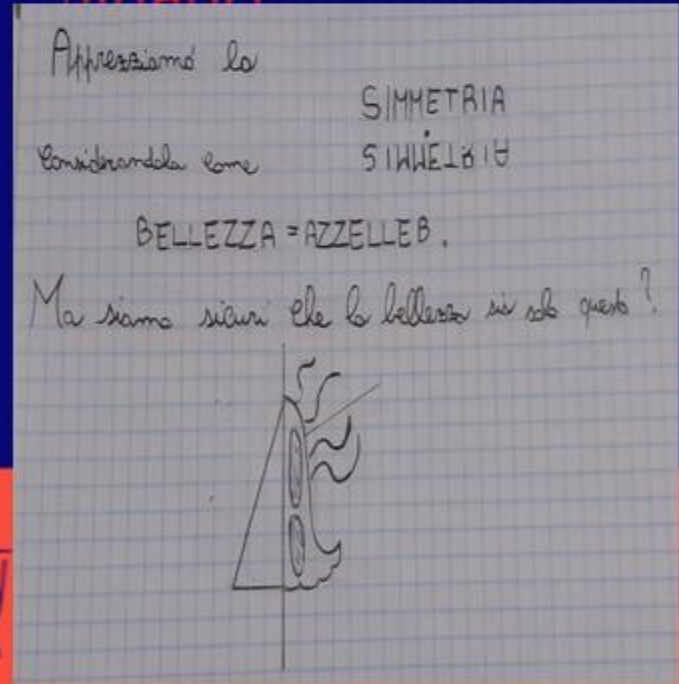 Apprezziamo la
SIMMETRIA
Considerandola come SIMMETRIA
BELLEZZA = AZZELLEB.
Ma siamo sicuri che la bellezza sia solo questo?